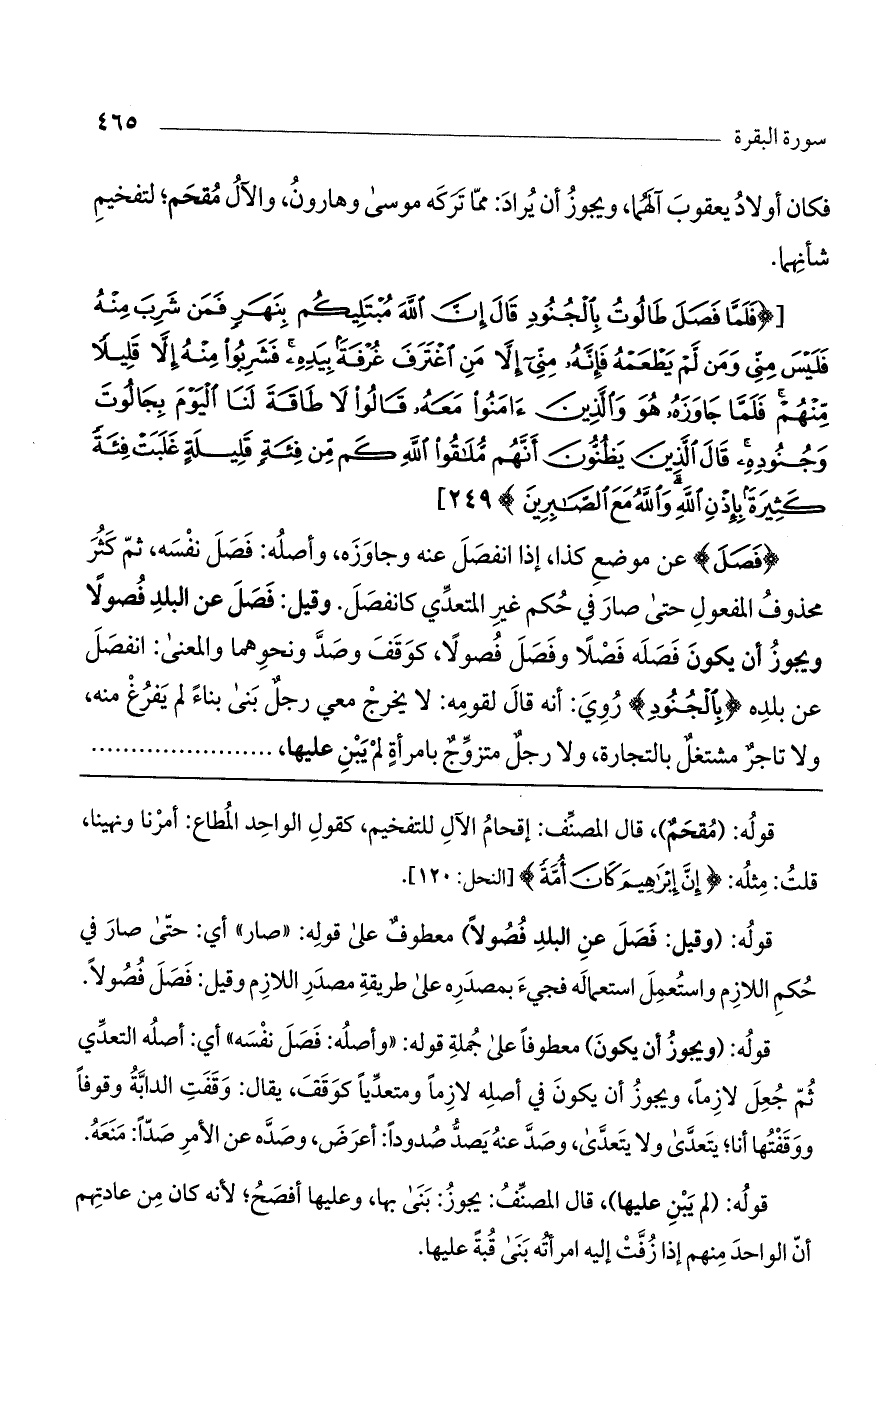 سورة البقرة ٤٦٥
فكان أولادُ يعقوبَ آلَهُما، ويجوزُ أن يُرادَ: ممّا تَرَكَه موسىٰ وهارونُ، والآلُ مُقحَم؛ لتفخيمِ
شأنِهما.
[﴿فَلَمَّا فَصَلَ طَالُوتُ بِٱلْجُنُودِ قَالَ إِنَّ ٱللَّهَ مُبْتَلِيكُم بِنَهَرٍ فَمَن شَرِبَ مِنْهُ
فَلَيْسَ مِنِّى وَمَن لَّمْ يَطْعَمْهُ فَإِنَّهُۥ مِنِّىٓ إِلَّا مَنِ ٱغْتَرَفَ غُرْفَةًۢ بِيَدِهِۦۚ فَشَرِبُوا۟ مِنْهُ إِلَّا قَلِيلًا
مِّنْهُمْۚ فَلَمَّا جَاوَزَهُۥ هُوَ وَٱلَّذِينَ ءَامَنُوا۟ مَعَهُۥ قَالُوا۟ لَا طَاقَةَ لَنَا ٱلْيَوْمَ بِجَالُوتَ
وَجُنُودِهِۦۚ قَالَ ٱلَّذِينَ يَظُنُّونَ أَنَّهُم مُّلَٰقُوا۟ ٱللَّهِ كَم مِّن فِئَةٍ قَلِيلَةٍ غَلَبَتْ فِئَةً
كَثِيرَةًۢ بِإِذْنِ ٱللَّهِۗ وَٱللَّهُ مَعَ ٱلصَّٰبِرِينَ﴾ ٢٤٩]
﴿فَصَلَ﴾ عن موضعِ كذا، إذا انفصَلَ عنه وجاوَزَه، وأصلُه: فَصَلَ نفْسَه، ثمّ كَثُرَ
محذوفُ المفعولِ حتىٰ صارَ في حُكم غيرِ المتعدِّي كانفصَلَ. وقيل: فَصَلَ عن البلدِ فُصولًا
ويجوزُ أن يكونَ فَصَلَه فَصْلًا وفَصَلَ فُصولًا، كوَقَفَ وصَدَّ ونحوِهما والمعنىٰ: انفصَلَ
عن بلدِه ﴿بِٱلْجُنُودِ﴾ رُوِيَ: أنه قالَ لقومِه: لا يخرجْ معي رجلٌ بَنىٰ بناءً لم يَفرُغْ منه،
ولا تاجرٌ مشتغلٌ بالتجارة، ولا رجلٌ متزوِّجٌ بامرأةٍ لمْ يَبْنِ عليها، .......................
قولُه: (مُقحَمٌ)، قال المصنِّف: إقحامُ الآلِ للتفخيم، كقولِ الواحِد المُطاع: أمرْنا ونهينا،
قلتُ: مِثلُه: ﴿إِنَّ إِبْرَٰهِيمَ كَانَ أُمَّةً﴾ [النحل: ١٢٠].
قولُه: (وقيل: فَصَلَ عنِ البلدِ فُصُولاً) معطوفٌ علىٰ قولِه: «صار» أي: حتّىٰ صارَ في
حُكمِ اللازِم واستُعمِلَ استعمالَه فجيءَ بمصدَرِه علىٰ طريقةِ مصدَرِ اللازِم وقيل: فَصَلَ فُصُولاً.
قولُه: (ويجوزُ أن يكونَ) معطوفاً علىٰ جُملةِ قوله: «وأصلُه: فَصَلَ نفْسَه» أي: أصلُه التعدِّي
ثُمّ جُعِلَ لازِماً، ويجوزُ أن يكونَ في أصلِه لازِماً ومتعدِّياً كوَقَفَ، يقال: وَقَفَتِ الدابَّةُ وقوفاً
ووَقَفْتُها أنا؛ يتعدَّىٰ ولا يتعدَّىٰ، وصَدَّ عنهُ يَصدُّ صُدوداً: أعرَضَ، وصدَّه عن الأمرِ صَدّاً: مَنَعَهُ.
قولُه: (لم يَبْنِ عليها)، قال المصنِّفُ: يجوزُ: بَنَىٰ بها، وعليها أفصَحُ؛ لأنه كان مِن عادتِهم
أنّ الواحدَ مِنهم إذا زُفَّتْ إليه امرأتُه بَنَىٰ قُبةً عليها.